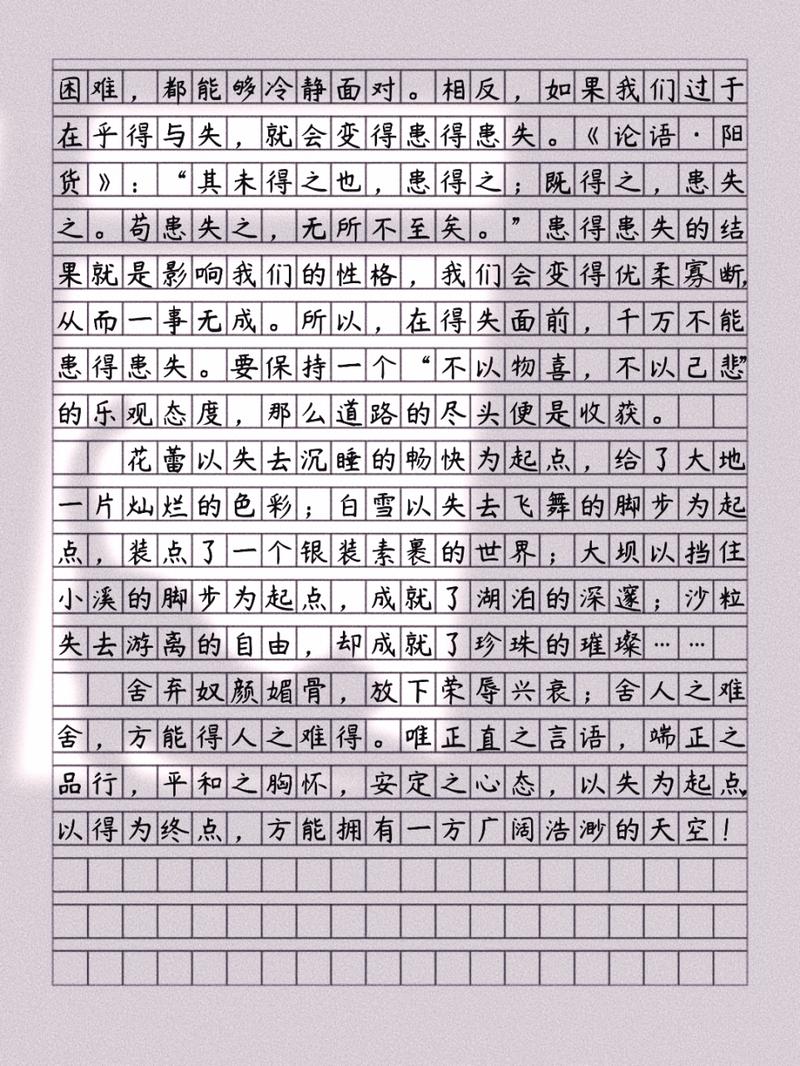 困难，都能够冷静面对。相反，如果我们过于
在乎得与失，就会变得患得患失。《论语·阳
货》：“其未得之也，患得之；既得之，患失
之。苟患失之，无所不至矣。”患得患失的结
果就是影响我们的性格，我们会变得优柔寡断，
从而一事无成。所以，在得失面前，千万不能
患得患失。要保持一个“不以物喜，不以己悲”
的乐观态度，那么道路的尽头便是收获。
花蕾以失去沉睡的畅快为起点，给了大地
一片灿烂的色彩；白雪以失去飞舞的脚步为起
点，装点了一个银装素裹的世界；大坝以挡住
小溪的脚步为起点，成就了湖泊的深邃；沙粒
失去游离的自由，却成就了珍珠的璀璨……
舍弃奴颜媚骨，放下荣辱兴衰；舍人之难
舍，方能得人之难得。唯正直之言语，端正之
品行，平和之胸怀，安定之心态，以失为起点，
以得为终点，方能拥有一方广阔浩渺的天空！